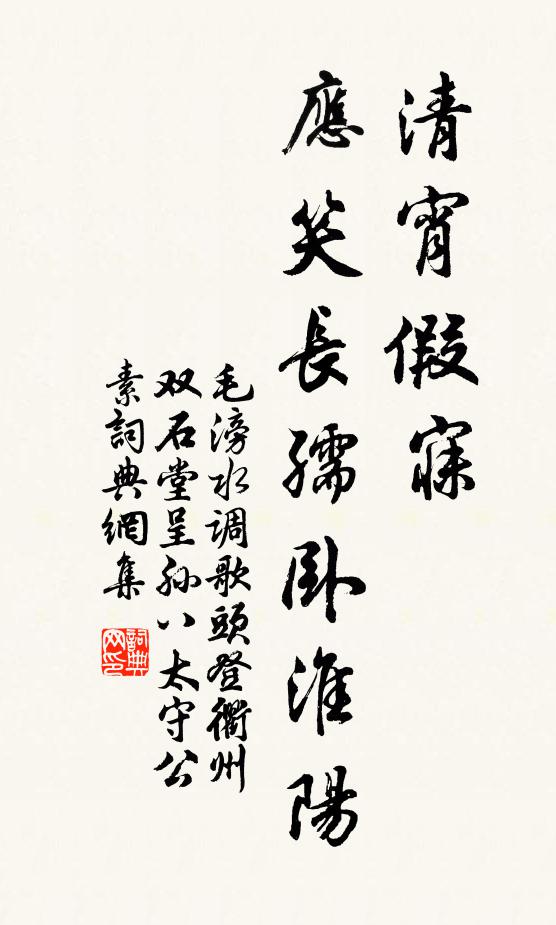 清宵假寐
應笑長孺卧淮陽
毛滂水调歌頭登衢州
双石堂呈孙八太守公
素詞典網集
詞典网印